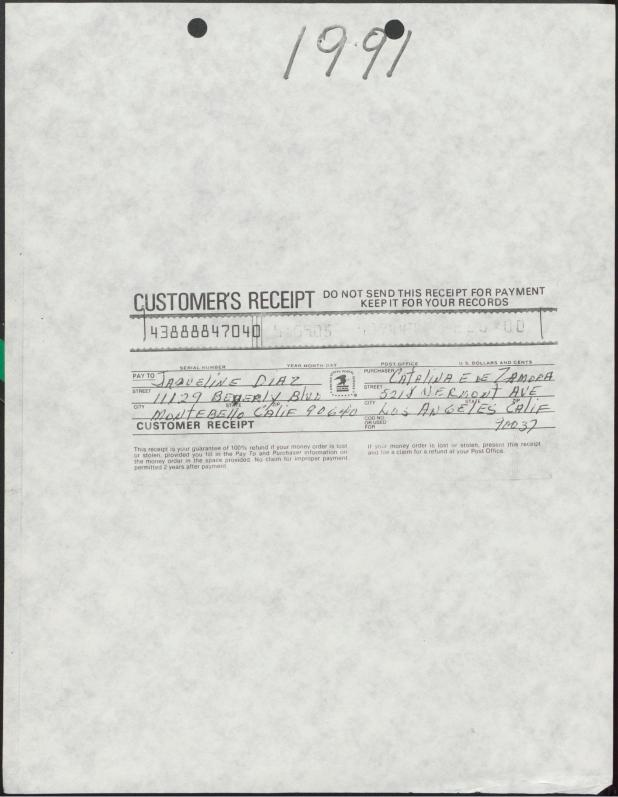 1991
CUSTOMER'S RECEIPT DO NOT SEND THIS RECEIPT FOR PAYMENT
KEEP IT FOR YOUR RECORDS
43888847040
SERIAL NUMBER YEAR MONTH DAY POST OFFICE U.S. DOLLARS AND CENTS
PAY TO JAQUELINE DIAZ
STREET 11129 BEVERLY BLVD
CITY STATE ZIP MONTEBELLO CALIF 90640
CUSTOMER RECEIPT
PURCHASER CATALINA E DE ZAMORA
STREET 5218 VERMONT AVE
CITY STATE ZIP LOS ANGELES CALIF
COD NO. OR USED FOR 90037
This receipt is your guarantee of 100% refund if your money order is lost
or stolen, provided you fill in the Pay To and Purchaser information on
the money order in the space provided. No claim for improper payment
permitted 2 years after payment.
If your money order is lost or stolen, present this receipt
and file a claim for a refund at your Post Office.